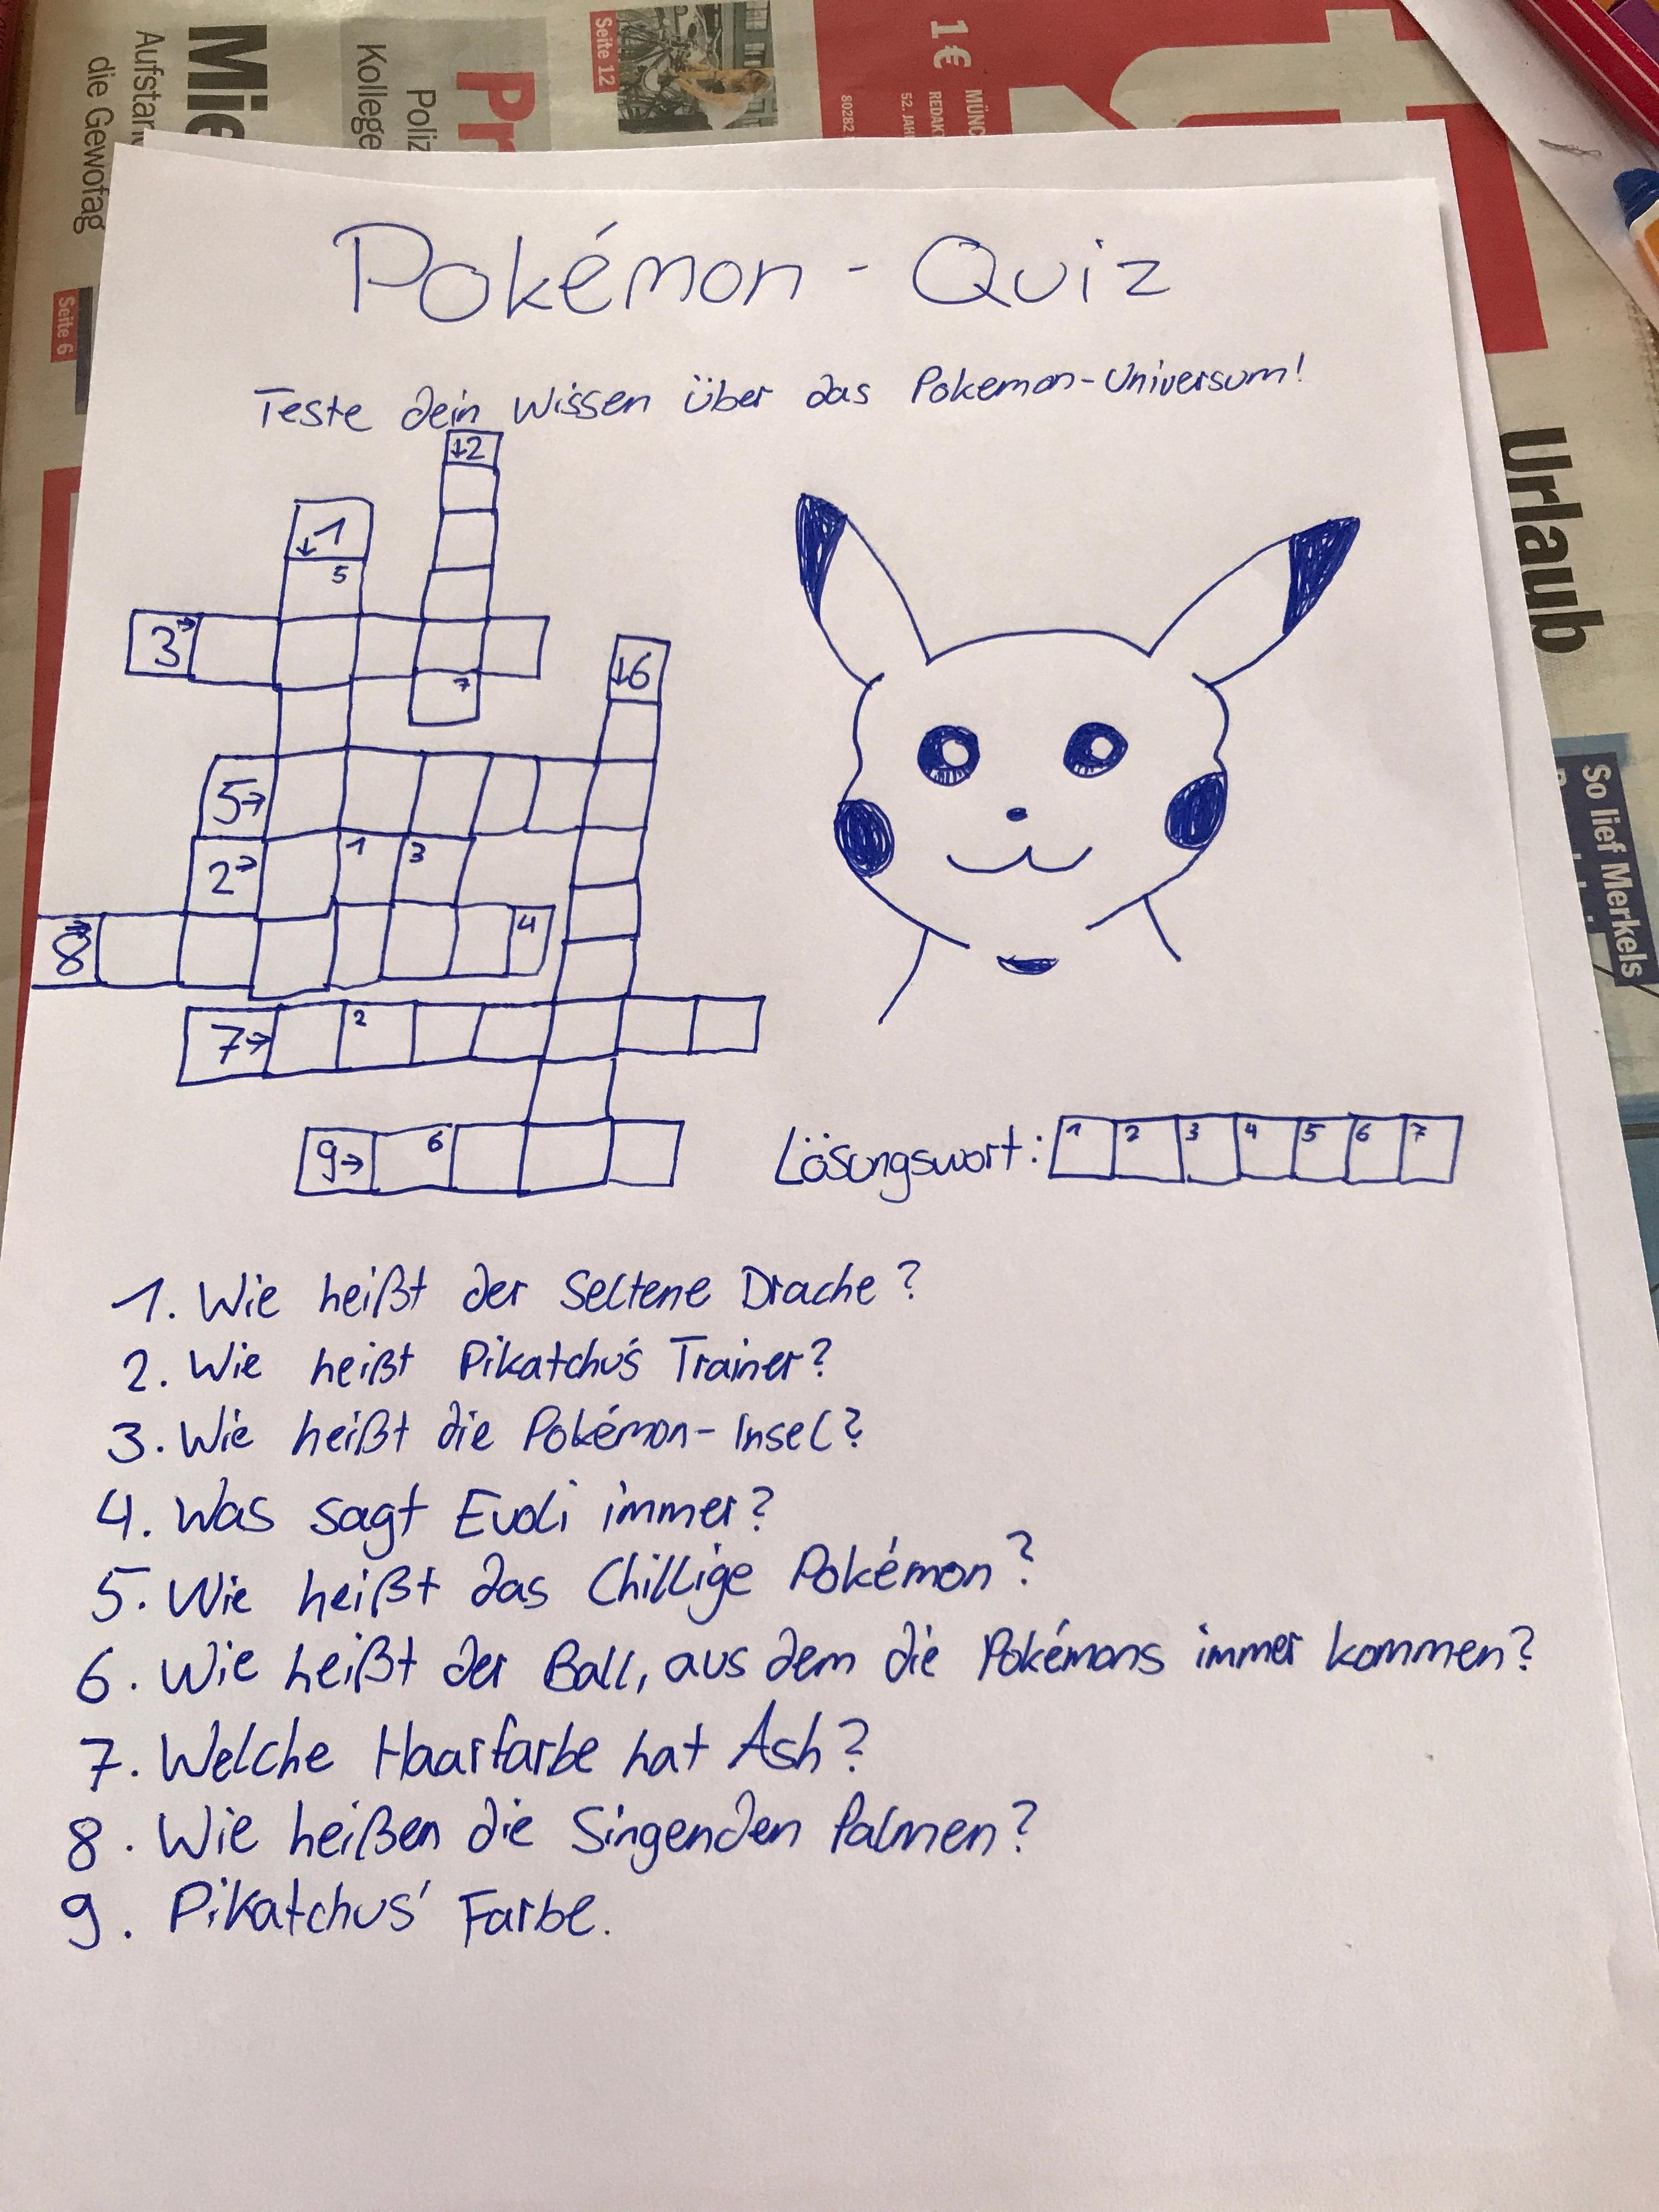 Mie
Aufstan
die Gewofag
Kollege
Poliz
Pr
Seite 12
1 €
MÜNC
REDAKT
52. JAH
80282
Seite 6
Urlaub
So lief Merkels
Pokémon - Quiz
Teste dein Wissen über das Pokemon-Universum!
↓2
↓1
5
3→
7
↓6
5→
2→ 1 3
8→ 4
7→ 2
9→ 6
Lösungswort: 1 2 3 4 5 6 7
1. Wie heißt der Seltene Drache?
2. Wie heißt Pikatchu's Trainer?
3. Wie heißt die Pokémon-Insel?
4. Was sagt Evoli immer?
5. Wie heißt das Chillige Pokémon?
6. Wie heißt der Ball, aus dem die Pokémons immer kommen?
7. Welche Haarfarbe hat Ash?
8. Wie heißen die Singenden Palmen?
9. Pikatchus' Farbe.